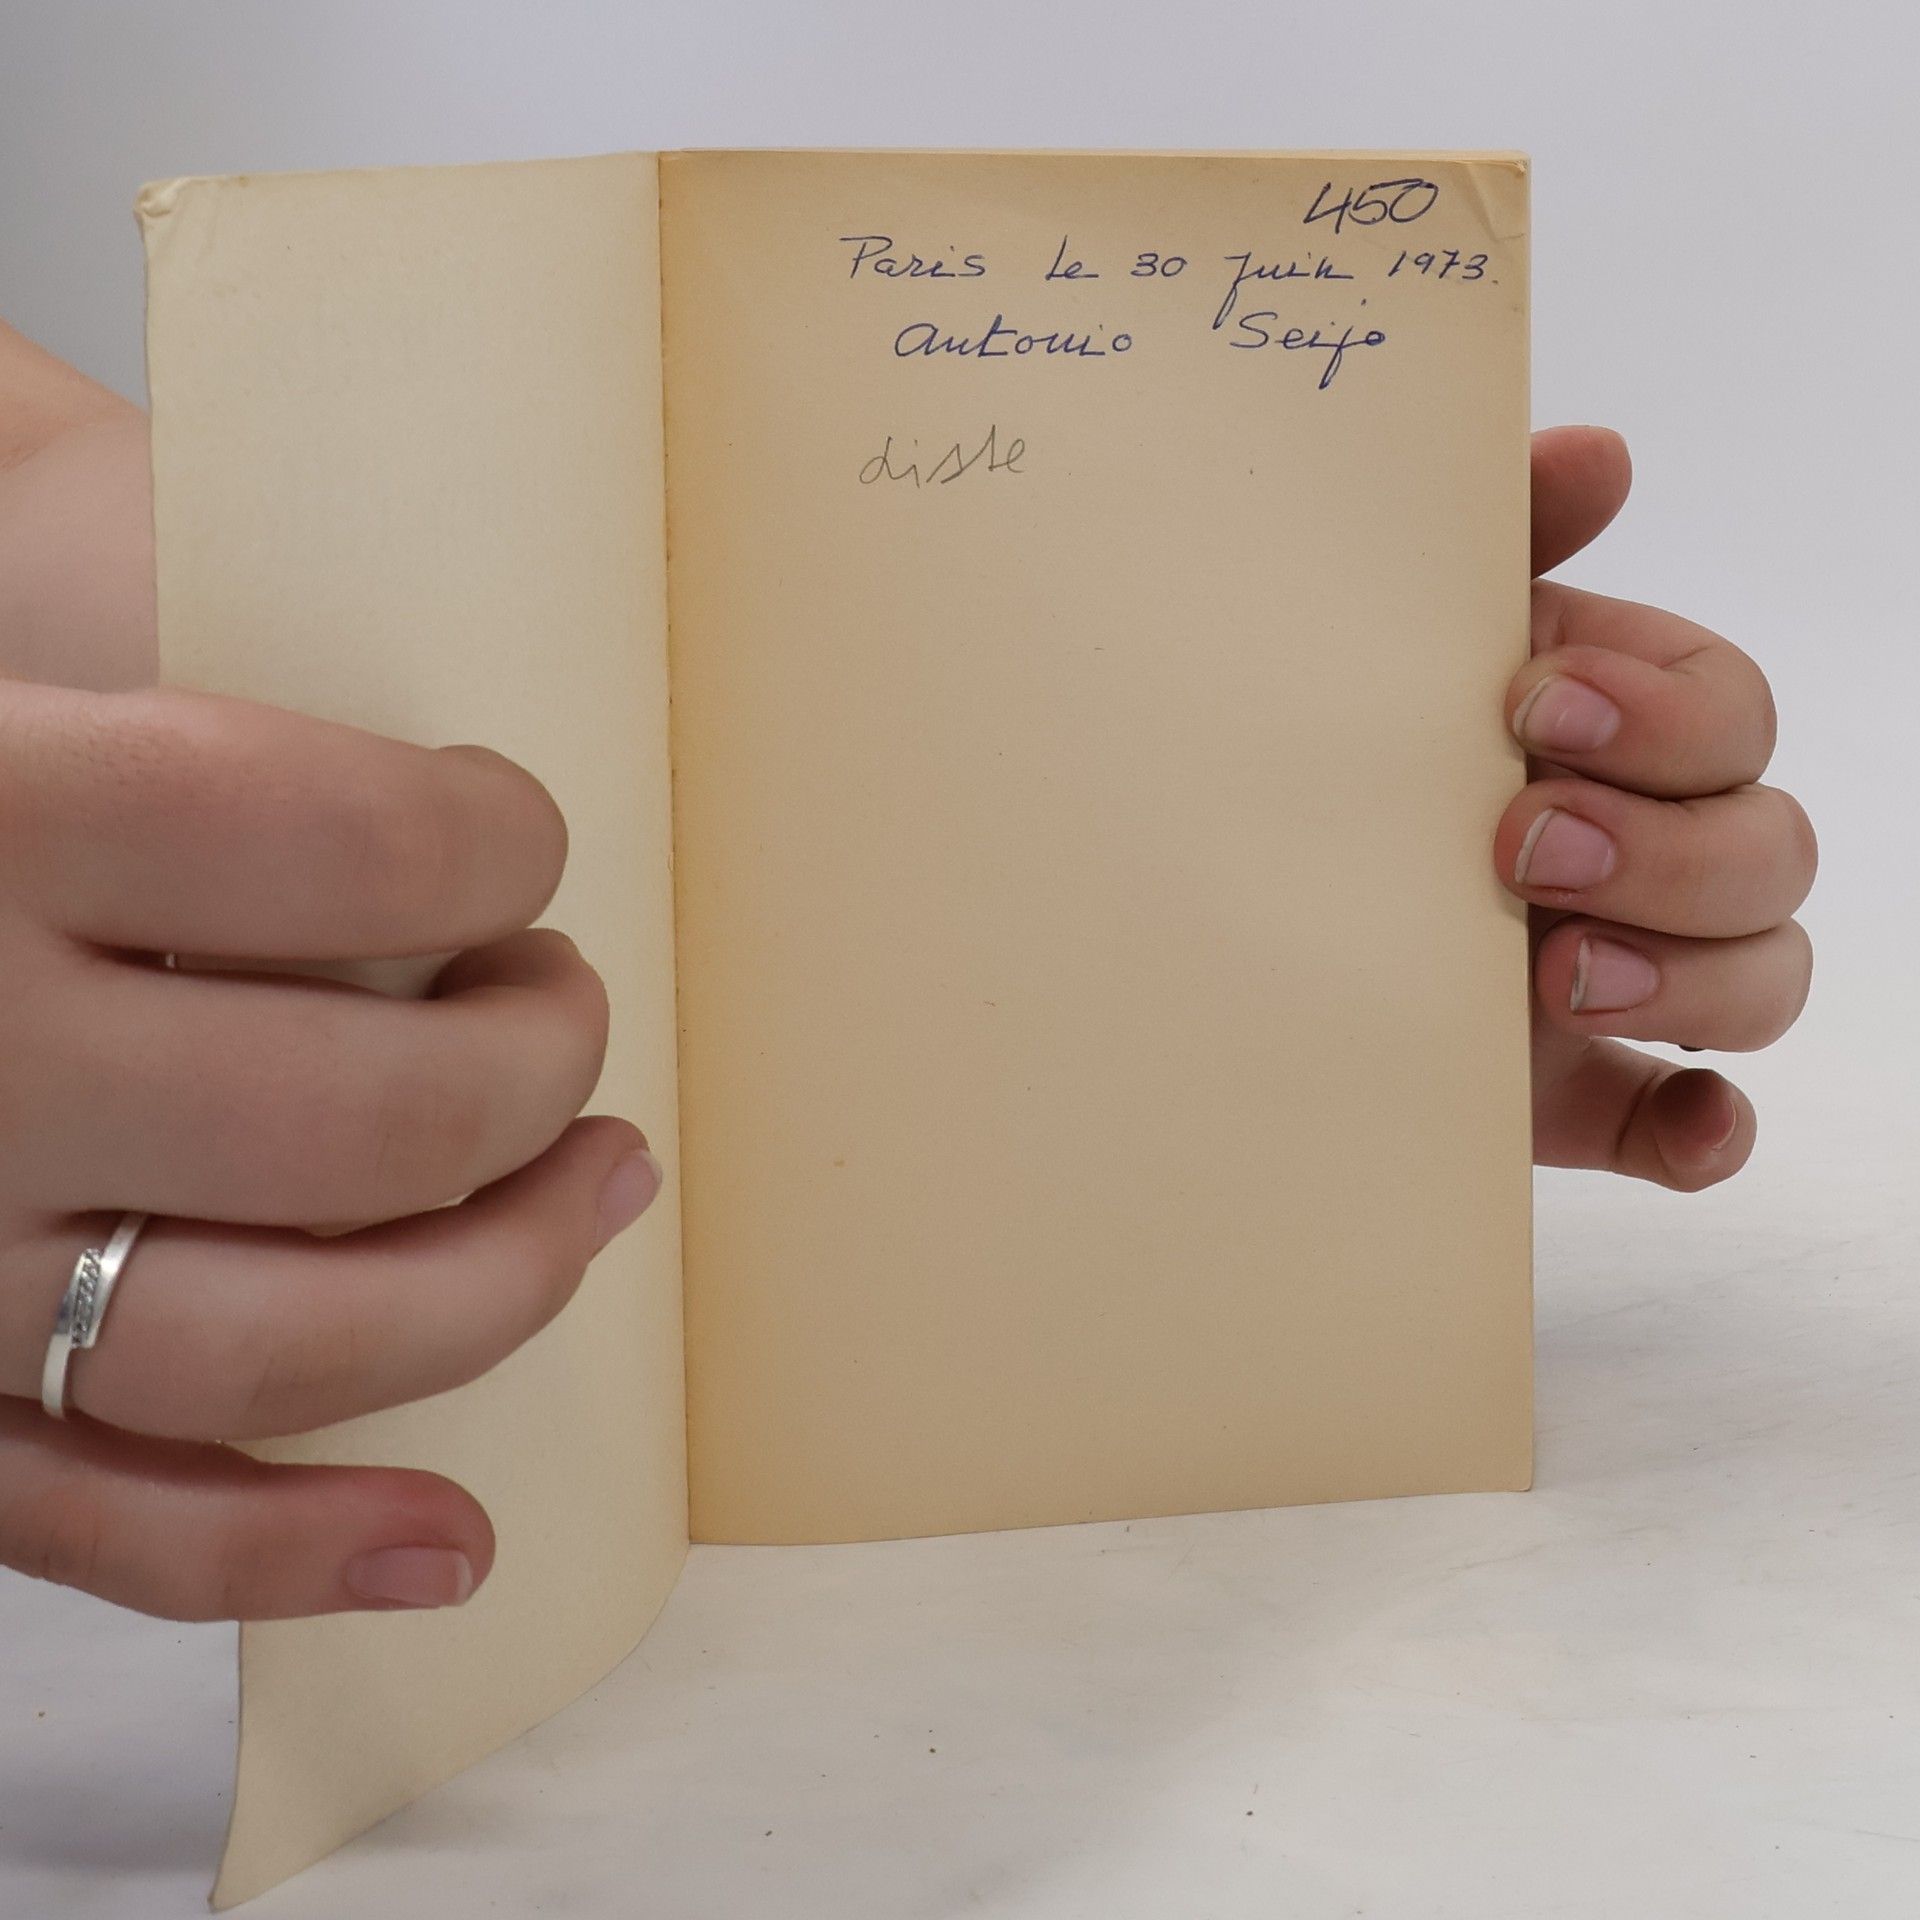 450
Paris le 30 Juin 1973.
Antonio Seijo